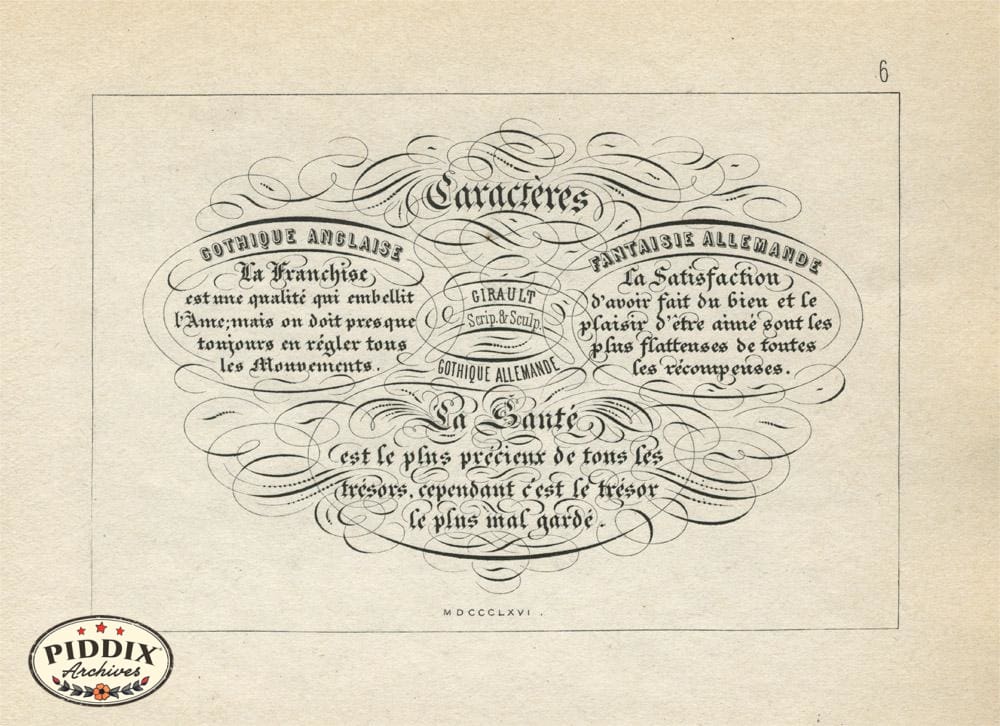 6
Caractères
GOTHIQUE ANGLAISE
La Franchise
est une qualité qui embellit
l'Âme; mais on doit presque
toujours en régler tous
les Mouvements.
GIRAULT
Scrip. & Sculp.
FANTAISIE ALLEMANDE
La Satisfaction
d'avoir fait du bien et le
plaisir d'être aimé sont les
plus flatteuses de toutes
les récompenses.
GOTHIQUE ALLEMANDE
La Santé
est le plus précieux de tous les
trésors, cependant c'est le trésor
le plus mal gardé.
MDCCCLXVI.
PIDDIX
Archives